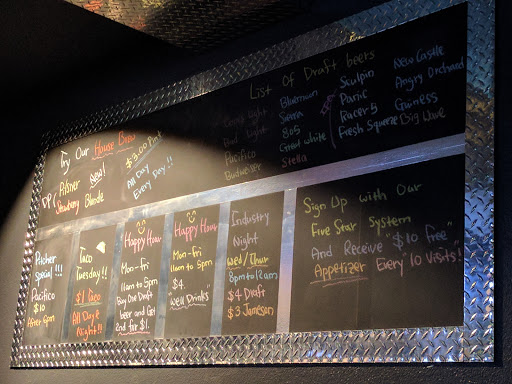 Try Our House Brew
Pilsner New!
DP Strawberry Blonde
$3.00 Pint
All Day
Every Day!!
List Of Draft beers
Coors Light
Bud Light
Pacifico
Budweiser
Bluemoon
Sierra
805
Great white
Stella
Sculpin
Pranic
Racer-5
Fresh Squeeze
New Castle
Angry Orchard
Guiness
Big Wave
Pitcher
Special!!!
Pacifico
$10
After 6pm
Taco
Tuesday!!
$1 Taco
All Day &
Night!!!
Happy Hour
Mon-Fri
11am to 5pm
Buy One Draft
beer and Get
2nd for $1.
Happy Hour
Mon-Fri
11am to 5pm
$4.
Well Drinks"
Industry
Night
Wed/Thur
8pm to 12am
$4 Draft
$3 Jameson
Sign Up with Our
Five Star System
And Receive "$10 free"
Appetizer Every 10 Visits!"